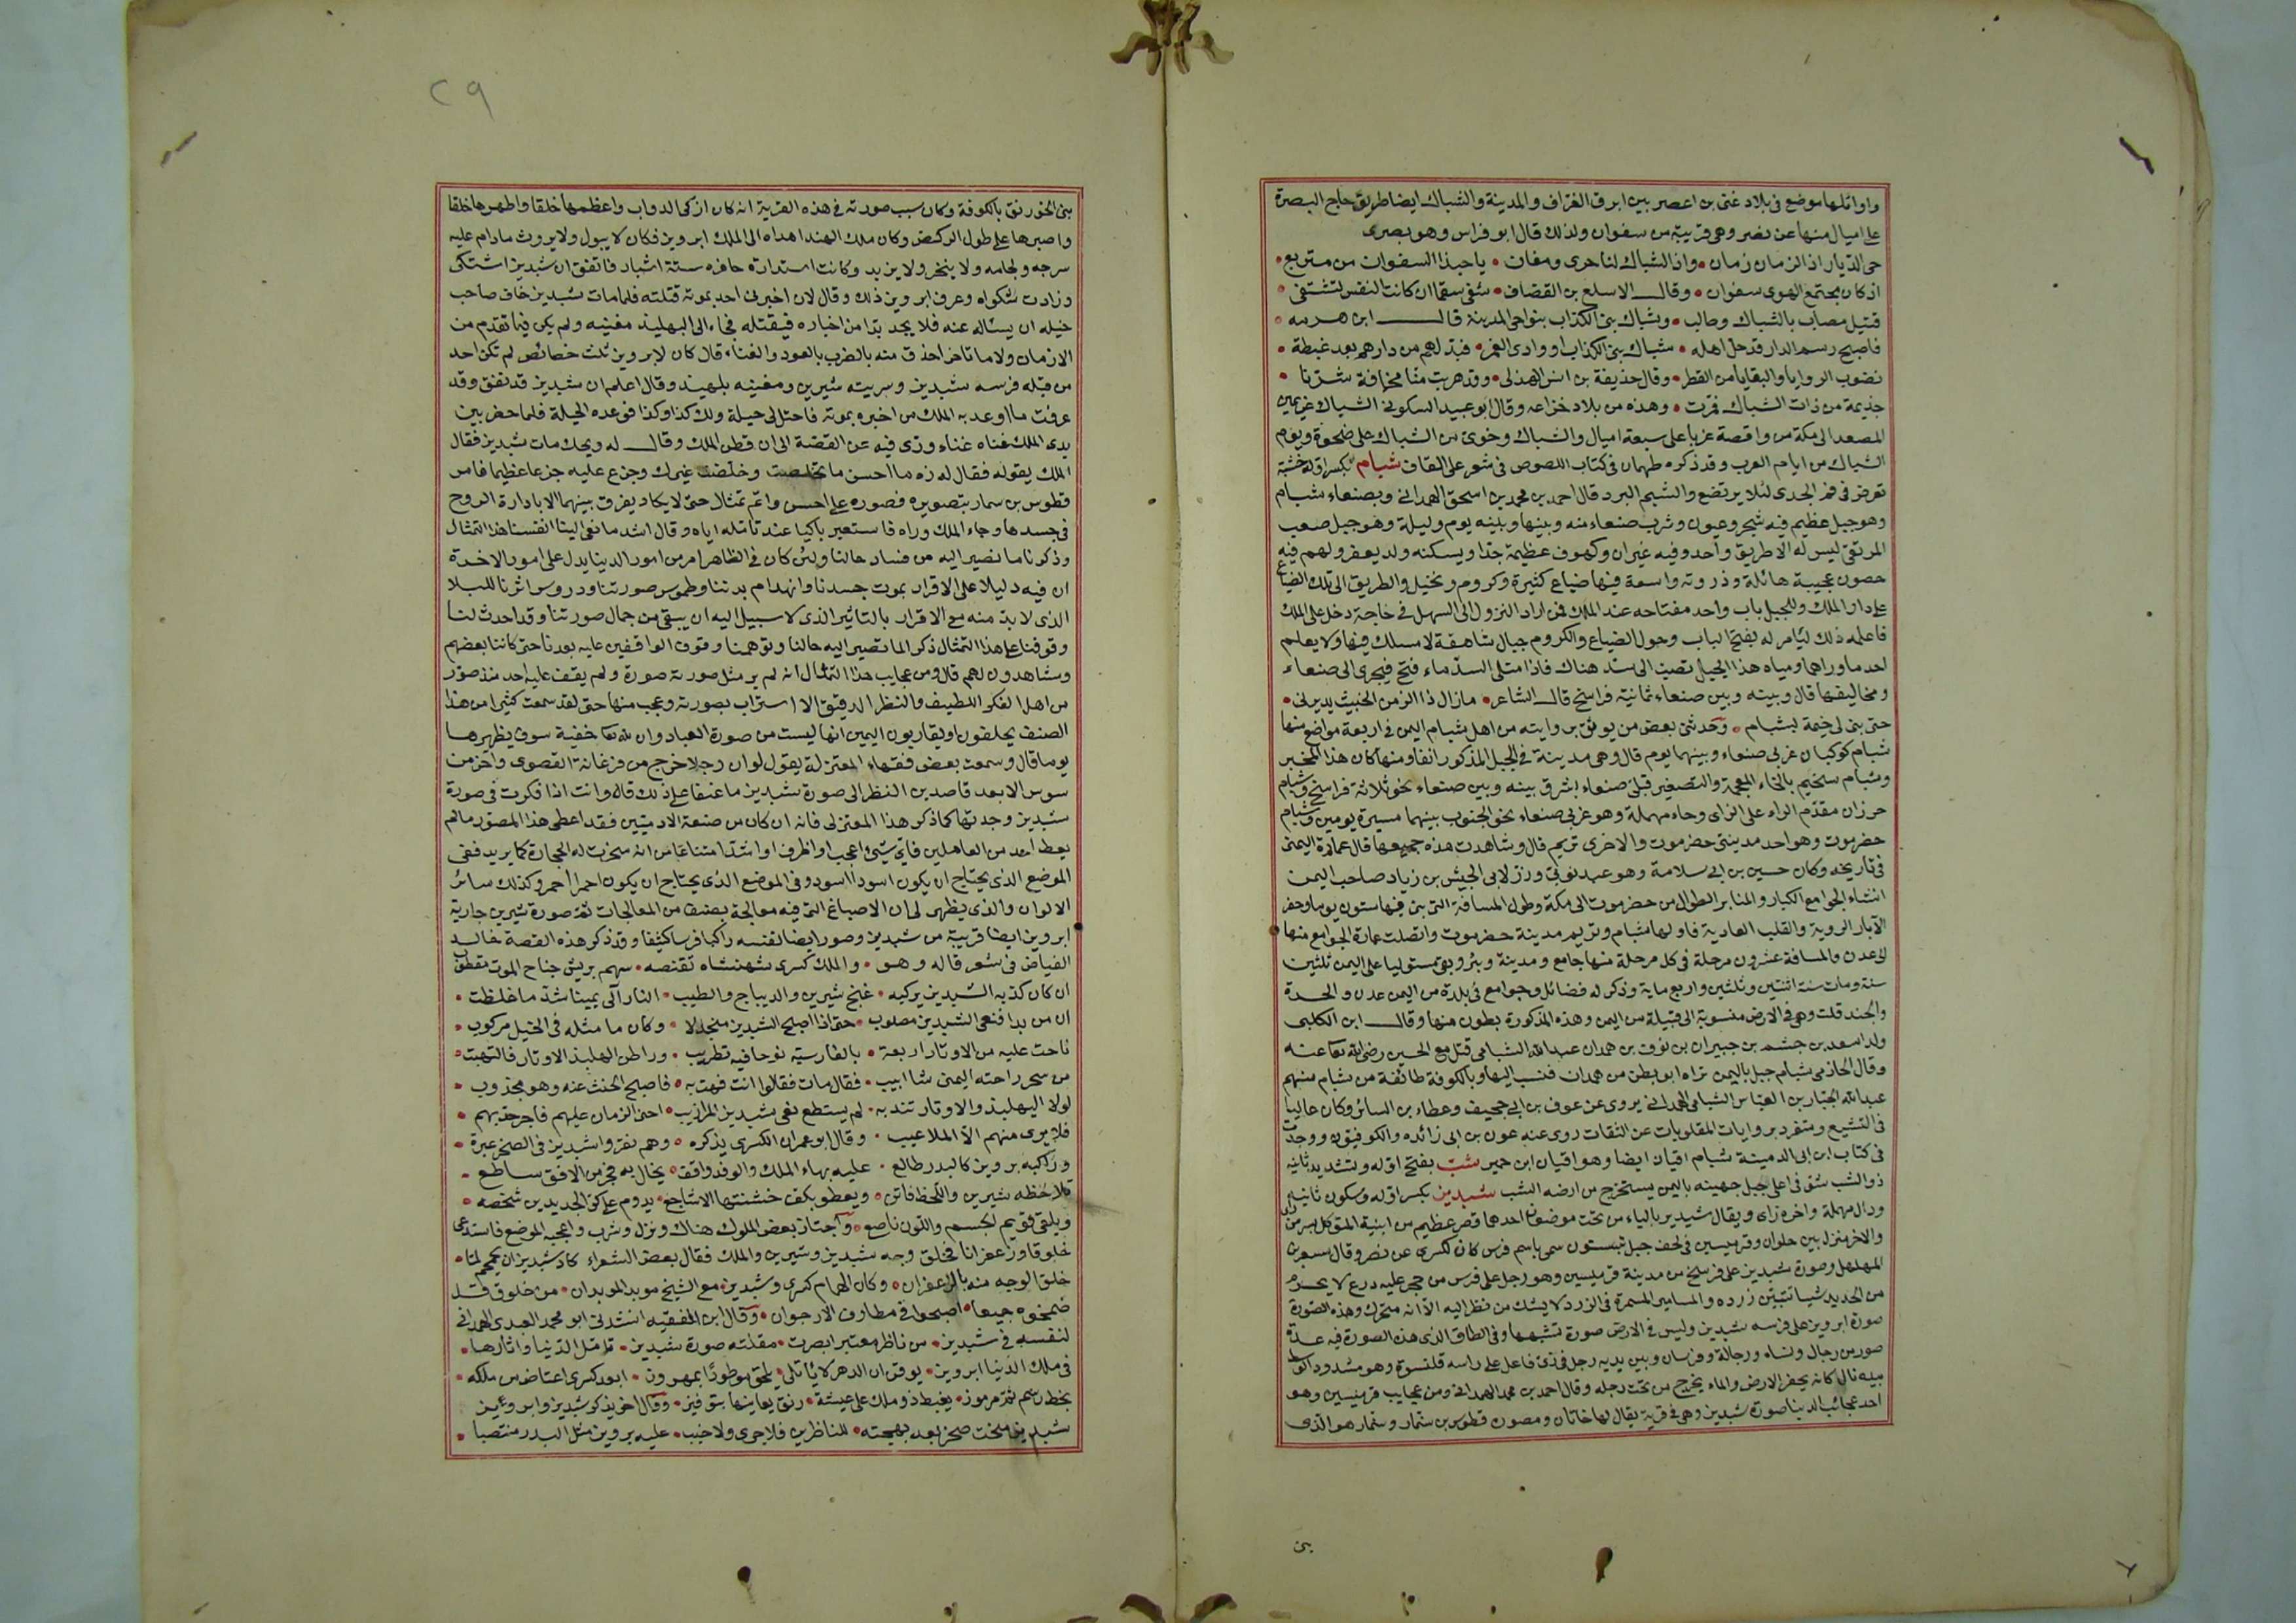 واوائلها موضع فى بلاد غنى بن اعصر بين ابرق العزاف والمدينة والشباك ايضا طريق حاج البصرة
على اميال منها عن نصر وهى قريبة من سفوان ولذلك قال ابو فراس وهو بصرى
حى الديار اذ الزمان زمان • واذ الشباك لنا حرى ومغان • يا حبذا السفوان من متربع •
اذ كان مجتمع الهوى سفوان • وقال الاسلع بن القصاف • شفى سقما ان كانت النفس تشتفى •
قتيل مصاب بالشباك وطالب • وشباك بنى الكذاب بنواحى المدينة قال ابن هرمه •
فاصبح رسم الدار قد حل اهله • شباك بنى الكذاب او وادى الغمر • فبدلهم من دارهم بعد غبطة •
نضوب الروايا والبقايا من القطر • وقال حذيفة بن انس الهذلى • وقد هربت منا مخافة شرنا •
جذيمة من ذات الشباك فمرت • وهذه من بلاد خزاعه وقال ابو عبيد السكونى الشباك عن يمين
المصعد الى مكة من واقصة غربا على سبعة اميال والشباك وخوى من الشباك على ضحوة ويوم
الشباك من ايام العرب وقد ذكره طهمان فى كتاب اللصوص فى شعر على القاف شبام بكسر اوله خشبة
تعرض فى فم الجدى لئلا يرتضع والشبم البرد قال احمد بن محمد بن اسحق الهمدانى وبصنعاء شبام
وهو جبل عظيم فيه شجر وعيون وشرب صنعاء منه وبينها وبينه يوم وليلة وهو جبل صعب
المرتقى ليس له الا طريق واحد وفيه غيران وكهوف عظيمة جدا ويسكنه ولد يعفر ولهم فيه
حصون عجيبة هائلة وذروته واسعة فيها ضياع كثيرة وكروم ونخيل والطريق الى تلك الضياع
على دار الملك وللجبل باب واحد مفتاحه عند الملك فمن اراد النزول الى السهل فى حاجة دخل على الملك
فاعلمه ذلك ليامر له بفتح الباب وحول الضياع والكروم جبال شاهقة لا مسلك فيها ولا يعلم
احد ما وراها ومياه هذا الجبل تصب الى سد هناك فاذا امتلى السد ماء فتح فيجرى الى صنعاء
ومخاليفها قال وبينه وبين صنعاء ثمانية فراسخ قال الشاعر • مازال ذا الزمن الخبيث يديرنى •
حتى بنى لى خيمة لبشبام • وحدثنى بعض من يوثق بروايته من اهل شبام اليمن فى اربعة مواضع منها
شبام كوكبان غربى صنعاء وبينهما يوم قال وهى مدينة فى الجبل المذكور انفا ومنها كان هذا المخبر
وشبام سخيم بالخاء المعجمة والتصغير قبلى صنعاء بشرق بينه وبين صنعاء نحو ثلاثة فراسخ وشبام
حرزان مقدم الراء على الزاى وحاء مهملة وهو غربى صنعاء نحو الجنوب بينهما مسيرة يومين وشبام
حضرموت وهو احد مدينتى حضرموت والاخرى تريم قال وشاهدت هذه جميعها قال عمارة اليمنى
فى تاريخه وكان حسين بن ابى سلامة وهو عبد نوبى وزر لابى الجيش بن زياد صاحب اليمن
انشاء الجوامع الكبار والمنابر الطوال من حضرموت الى مكة وطول المسافة التى بنى فيها ستون يوما وحفر
الآبار الروية والقلب العادية فاولها شبام وتريم مدينة حضرموت واتصلت عمارة الجوامع منها
الى عدن والمسافة عشرون مرحلة فى كل مرحلة منها جامع ومدينة وبئر وبقى مستوليا على اليمن ثلثين
سنة ومات سنة اثنتين وثلثين واربع ماية وذكر له فضائل وجوامع فى بلدة من اليمن عدن والحدة
والجند قلت وهى فى الارض منسوبة الى قبيلة من اليمن وهذه المذكورة بطون منها وقال ابن الكلبى
ولد اسعد بن جشم بن جبيران بن نوف بن همدان عبد الله الشبامى قتل مع الحسين رضى الله تعا عنه
وقال الحازمى شبام جبل باليمن نزله ابو بطن من همدان فنسب اليها وبالكوفة طائفة من شبام منهم
عبد الله الجبار بن العباس الشبامى الهمدانى يروى عن عوف بن ابى جحيف وعطاء بن السائر وكان غاليا
فى التشيع وتنفرد بروايات المقلوبات عن الثقات روى عنه عون بن ابى زائده والكوفيون ووجدت
فى كتاب ابن ابى الدمينة شبام اقيان ايضا وهو اقيان ابن حمير شب بفتح اوله وتشديد ثانيه
ذو الشب شق فى اعلى جبل جهينه باليمن يستخرج من ارضه الشب شبديز بكسر اوله وسكون ثانيه
ودال مهملة واخره زاى ويقال شيديز بالياء من تحت موضعان احدهما قصر عظيم من ابنية المتوكل بسر من راى
والاخر منزل بين حلوان وقرميسين فى لحف جبل بيستون سمى باسم فرس كان لكسرى عن نصر وقال مسعر بن
المهلهل وصورة شبديز على فرسخ من مدينة قرميسين وهو رجل على فرس من حجر عليه درع لا يخرم
من الحديد شيا تتبين زرده والمسامير المسمرة فى الزرد لا يشك من نظر اليه الا انه متحرك وهذه الصورة
صورة ابرويز على فرسه شبديز وليس فى الارض صورة تشبهها وفى الطاق الذى هذه الصورة فيه عدة
صور من رجال ونساء ورجالة وفرسان وبين يديه رجل فى زى فاعل على راسه قلنسوة وهو مشدود الوسط
بيده بال كانه يحفر الارض والماء يخرج من تحت رجله وقال احمد بن محمد الهمدانى ومن عجايب قرميسين وهو
احد عجائب الدنيا صورة شبديز وهى فى قرية يقال لها خاتان ومصوره قطوس بن سنمار وسنمار هو الذى
بنى
٢٩
بنى الخورنق بالكوفة وكان سبب صورته فى هذه القرية انه كان ازكى الدواب واعظمها خلقا واظهرها خلقا
واصبرها على طول الركض وكان ملك الهند اهداه الى الملك ابرويز فكان لا يبول ولا يروث مادام عليه
سرجه ولجامه ولا ينخر ولا يزبد وكانت استدارة حافره ستة اشبار فاتفق ان شبديز اشتكى
وزادت شكواه وعرف ابرويز ذلك وقال لان اخبرنى احد بموته قتلته فلما مات شبديز خاف صاحب
خيله ان يسئاله عنه فلا يجد بدا من اخباره فيقتله فجاء الى البهلبذ مغنيه ولم يكن فيما تقدم من
الازمان ولا ما تاخر احذق منه بالضرب بالعود والغناء قال كان لابرويز ثلث خصائص لم تكن لاحد
من قبله فرسه شبديز وسريته شيرين ومغنيه بلهبد وقال اعلم ان شبديز قد نفق وقد
عرفت ما اوعد به الملك من اخبره بموته فاحتل لى حيلة ولك كذا وكذا فوعده الحيلة فلما حضر بين
يدى الملك غناه غناء ورى فيه عن القصة الى ان فطن الملك وقال له ويحك مات شبديز فقال
الملك يقوله فقال له زه ما احسن ما تخلصت وخلصت غيرك وجزع عليه جزعا عظيما فامر
قطوس بن سمار بتصويره فصوره على احسن واتم تمثال حتى لا يكاد يفرق بينهما الا بادارة الروح
فى جسدها وجاء الملك وراه فاستعبر باكيا عند تامله اياه وقال اشد ما نعى الينا انفسنا هذا التمثال
وذكرنا ما نصير اليه من فساد حالنا ولئن كان فى الظاهر امر من امور الدينا يدل على امور الاخرة
ان فيه دليلا على الاقرار بموت جسدنا وانهدام بدننا وطموس صورتنا ودروس اثرنا للبلا
الذى لا بد منه مع الاقرار بالتاثير الذى لا سبيل اليه ان يبقى من جمال صورتنا وقد احدث لنا
وقوفنا على هذا التمثال ذكر الما تصير اليه حالنا وتوهمنا وقوف الواقفين عليه بعدنا حتى كاننا بعضهم
ومشاهدون لهم قال ومن عجايب هذا التمثال انه لم ير مثل صورته صورة ولم يقف عليه احد منذ صور
من اهل الفكر اللطيف والنظر الدقيق الا استراب بصورته وعجب منها حتى لقد سمعت كثيرا من هذا
الصنف يحلفون او يقاربون اليمين انها ليست من صورة العباد وان لله تعا خفية سوف يظهرها
يوما قال وسمعت بعض فقهاء المعتزلة يقول لو ان رجلا خرج من فرغانة القصوى واخر من
سوس الابعد قاصدين النظر الى صورة شبديز ما عنفا على ذلك قال وانت اذا فكرت فى صورة
شبديز وجدتها كما ذكر هذا المعتزلى فانه ان كان من صنعة الادميين فقد اعطى هذا المصور مالم
يعط احد من العاملين فاى شئ اعجب او اظرف او اشد امتناعا من انه سخرت له الحجارة كما يريد ففى
الموضع الذى يحتاج ان يكون اسود اسود وفى الموضع الذى يحتاج ان يكون احمر احمر وكذلك سائر
الالوان والذى يظهر لى ان الاصباغ التى فيه معالجة بصنف من المعالجات ثم صورة شيرين جارية
ابرويز ايضا قريبة من شبديز وصور ايضا نفسه راكبا فرسا كثيفا وقد ذكر هذه القصة خالد
الفياض فى شعر قاله وهو • والملك كسرى شهنشاه تقنصه • سهم بريش جناح الموت مقطوب
ان كان كذبه الشبديز يركبه • غنج شيرين والديباج والطيب • النار آلى يمينا شد ما غلظت •
ان من بدا فنعى الشبديز مصلوب • حتى اذا اصبح الشبديز منجدلا • وكان ما مثله فى الخيل مركوب •
ناحت عليه من الاوتار اربعة • بالفارسية نوحا فيه تطريب • وراطن البهلبذ الاوتار فالتهبت •
من سحر راحته اليمنى شاابيب • فقال مات فقالوا انت فهت به • فاصبح الحنث عنه وهو مجذوب •
لولا البهلبذ والاوتار تندبه • لم يستطع نعى شبديز المرازيب • اخنى الزمان عليهم فاجرهد بهم •
فلا يرى منهم الا الملاعيب • وقال ابو عمران الكسرى يذكره • وهم نقروا شبديز فى الصخر عبرة •
وراكبه برويز كالبدر طالع • عليه بهاء الملك والوفد واقف • يخال به فجر من الافق ساطع •
تلاحظه شيرين واللحظ فاتن • ويعطو بكف خشنتها الاشاجع • يدوم على كر الجديدين شخصه •
ويلقى قويم الجسم واللون ناصع • واجتاز بعض الملوك هناك ونزل وشرب واعجبه الموضع فاستدعى
خلوقا وزعفرانا فخلق وجه شبديز وشيرين والملك فقال بعض الشعراء كاد شبديز ان يحمحم لما •
خلق الوجه منه بالزعفران • وكان الهمام كسرى وشبديز • مع الشيخ موبد الموبدان • من خلوق قد
ضمخوه جميعا • اصبحوا فى مطارف الارجوان • وقال ابن الفقيه انشدنى ابو محمد العبدى الهمدانى
لنفسه فى شبديز • من ناظر معتبر ابصرت • مقلته صورة شبديز • تامل الدنيا واثارها •
فى ملك الدنيا ابرويز • يوقن ان الدهر لا ياتلى • يلحق موطورا بمهرون • ابعد كسرى اعتاض من ملكه •
بخط رسم ثم مرموز • يغبط ذو ملك على عيشة • رنق يعانيها بتوفيز • وقال اخر يذكر شبديز وابرويز
شبديز منحت صخر بعد بهجته • للناظرين فلا جرى ولا خبب • عليه برويز مثل البدر منتصبا •